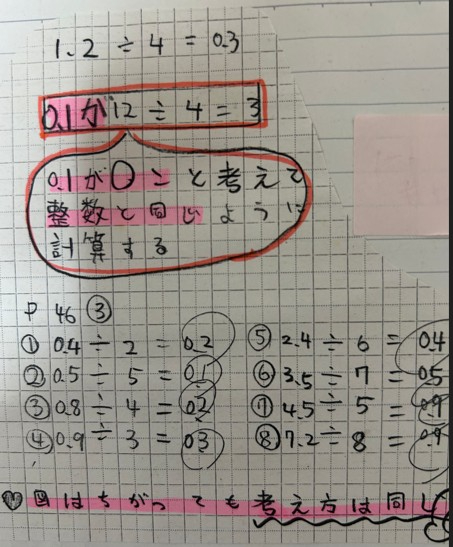 1.2 ÷ 4 = 0.3
0.1が12 ÷ 4 = 3
0.1が○こと考えて
整数と同じように
計算する
P 46 ③
① 0.4 ÷ 2 = 0.2
② 0.5 ÷ 5 = 0.1
③ 0.8 ÷ 4 = 0.2
④ 0.9 ÷ 3 = 0.3
⑤ 2.4 ÷ 6 = 0.4
⑥ 3.5 ÷ 7 = 0.5
⑦ 4.5 ÷ 5 = 0.9
⑧ 7.2 ÷ 8 = 0.9
♡図はちがっても考え方は同じ